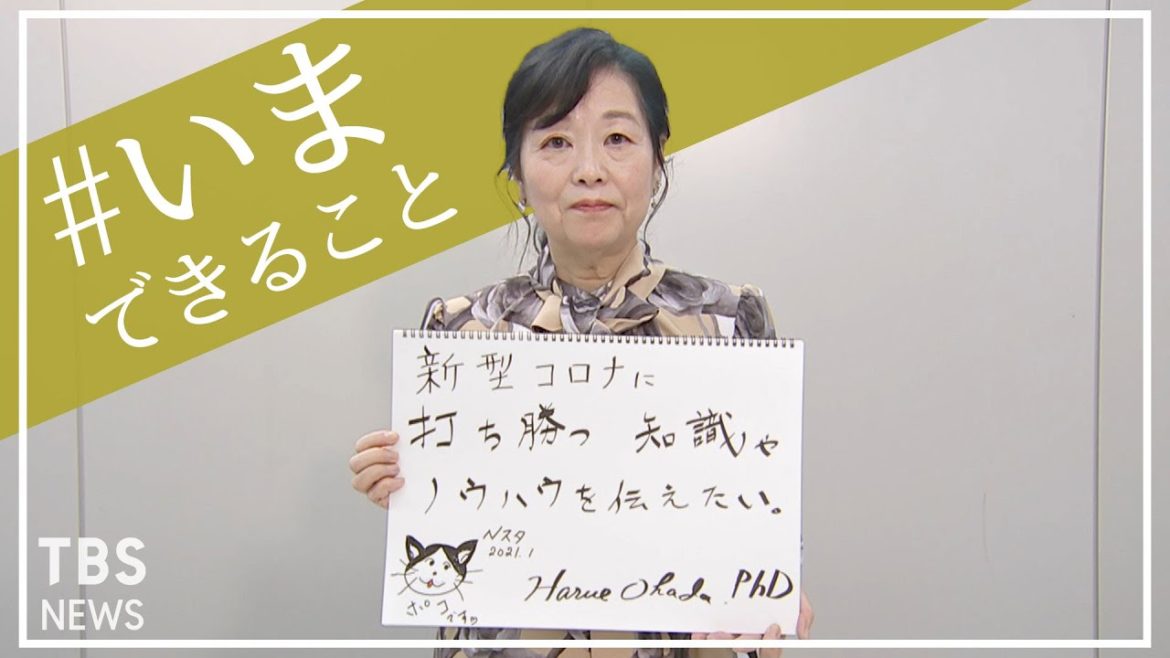 #いま
できること
新型コロナに
打ち勝つ 知識や
ノウハウを伝えたい。
Nスタ
2021.1
Harue Okada. PhD
ポコ
です
TBS
NEWS